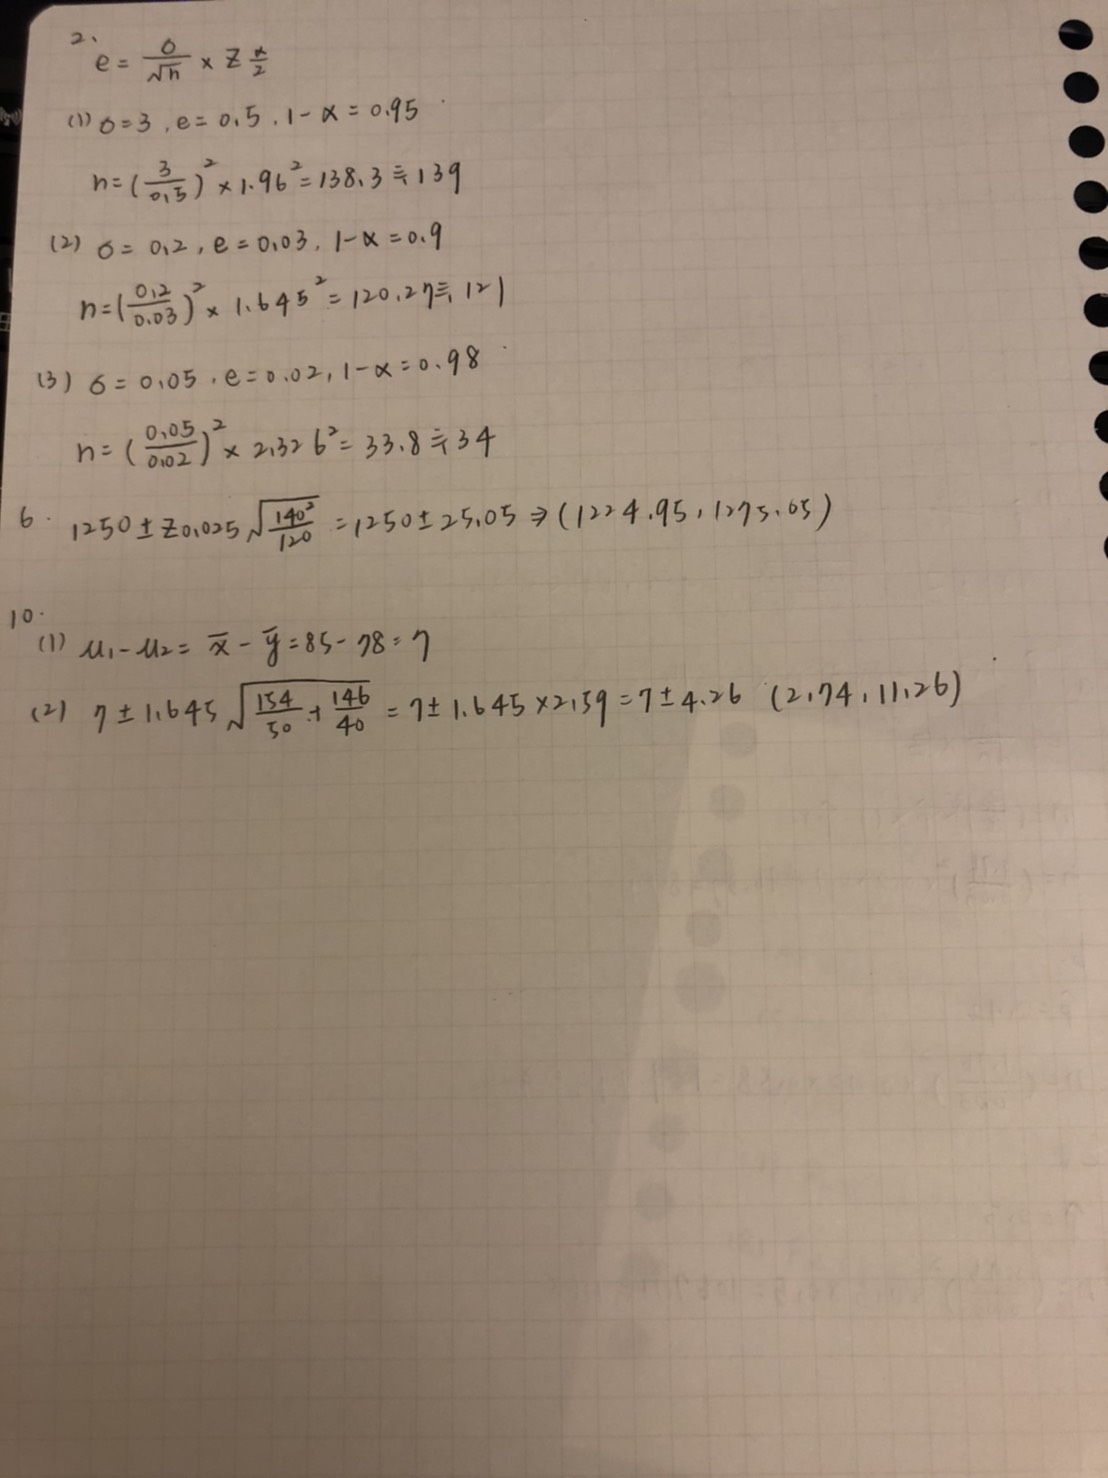 2.
e = σ/√n × Z α/2
(1) σ=3, e=0.5, 1-α=0.95
n=(3/0.5)² × 1.96² = 138.3 ≒ 139
(2) σ=0.2, e=0.03, 1-α=0.9
n=(0.2/0.03)² × 1.645² = 120.27 ≒ 121
(3) σ=0.05, e=0.02, 1-α=0.98
n=(0.05/0.02)² × 2.326² = 33.8 ≒ 34
6. 1250 ± Z0.025 √(140²/120) = 1250 ± 25.05 ⇒ (1224.95, 1275.05)
10.
(1) μ1-μ2 = x̄ - ȳ = 85-78 = 7
(2) 7 ± 1.645 √(154/50 + 146/40) = 7 ± 1.645 × 2.59 = 7 ± 4.26 (2.74, 11.26)